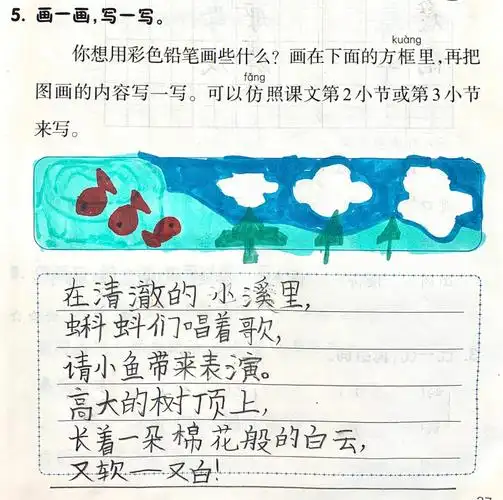 5. 画一画,写一写。
kuàng
你想用彩色铅笔画些什么?画在下面的方框里,再把
fǎng
图画的内容写一写。可以仿照课文第2小节或第3小节
来写。
在清澈的小溪里,
蝌蚪们唱着歌,
请小鱼带来表演。
高大的树顶上,
长着一朵棉花般的白云,
又软一又白!